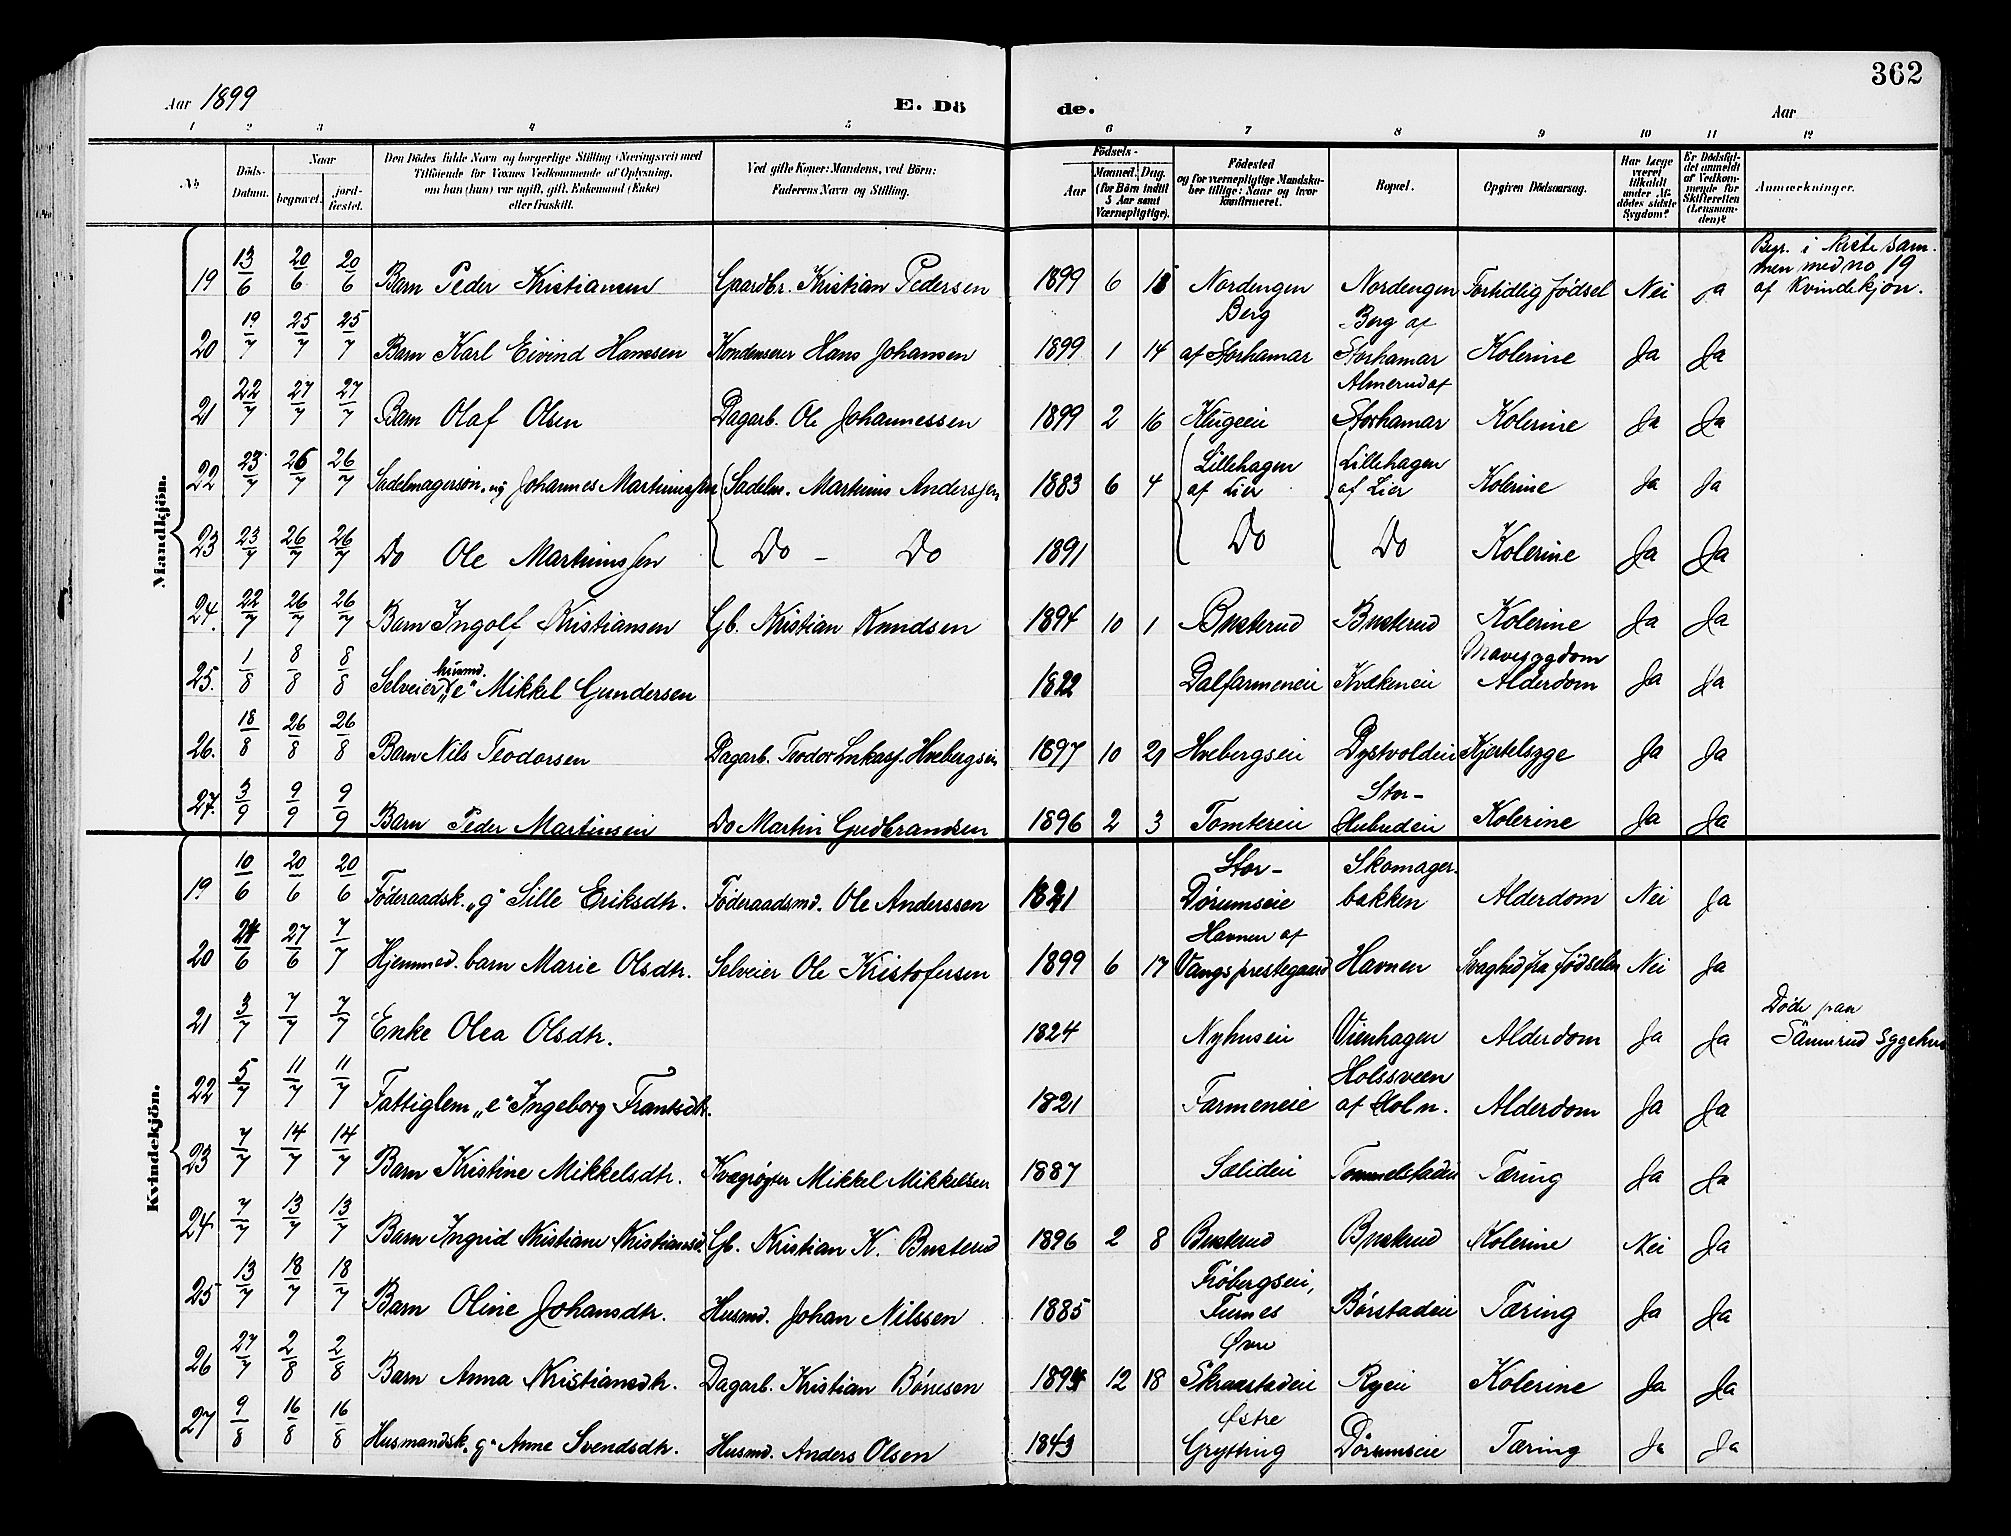 362
Aar 1899 E. Dö de. Aar
1 2 3 4 5 6 7 8 9 10 11 12
No. Döds-Datum. Naar begravet. jord-fæstet. Den Dödes fulde Navn og borgerlige Stilling (Næringsvei) med Tilföiende for Voxnes Vedkommende af Oplysning, om han (hun) var ugift, gift, Enkemand (Enke) eller fraskilt. Ved gifte Koner: Mandens, ved Börn: Faderens Navn og Stilling. Födsels- Aar Maaned. Dag. (for Börn indtil 5 Aar samt Værnepligtige). Födested og for værnepligtige Mandskaber tillige: Naar og hvor konfirmeret. Bopæl. Opgiven Dödsaarsag. Har Læge været tilkaldt under Afdödes sidste Sygdom? Er Dödsfaldet anmeldt af Vedkommende for Skifteretten (Lensmanden)? Anmærkninger.
Mandkjön.
19 13/6 20/6 20/6 Barn Peder Kristiansen Gaardbr. Kristian Pedersen 1899 6 Nordengen Nordengen Fortidlig fødsel Nei ja Begr. i kiste sammen med no 19 af Kvindekjøn.
20 19/7 25/7 25/7 Barn Karl Eivind Hanssen Kondenserer Hans Johansen 1899 1 14 Berg af Storhamar Berg af Storhamar Kolerine Ja Ja
21 22/7 27/7 27/7 Barn Olaf Olsen Dagarb. Ole Johannessen 1899 2 16 Klugeeie Almerud af Storhamar Kolerine Ja Ja
22 23/7 26/7 26/7 Sadelmagersøn, ug Johannes Martinussen Sadelm. Martinus Anderssen 1883 6 4 Lillehagen af Lier Lillehagen af Lier Kolerine Ja Ja
23 23/7 26/7 26/7 Do Ole Martinussen Do - Do 1891 Do Do Kolerine Ja Ja
24. 22/7 26/7 26/7 Barn Ingolf Kristiansen Gb. Kristian Knudsen 1894 10 1 Buskerud Buskerud Kolerine Ja Ja
25. 1/8 8/8 8/8 Selveierhusmd. "e" Mikkel Gundersen 1822 Dalfarmeneie Kvækeneie Mavesygdom Alderdom Ja Ja
26. 18/8 26/8 26/8 Barn Nils Teodorsen Dagarb. Teodor Lukass. Hvebergseie 1897 10 21 Hvebergseie Dystvoldeie Kjertelsyge Ja Ja
27. 3/9 9/9 9/9 Barn Peder Martinsen Do Martin Gudbrandsen 1896 2 3 Tomtereie Stor- Kolerine Ja Ja
Kvindekjön.
19 10/6 20/6 20/6 Føderaadsk. "g" Sille Eriksdtr. Føderaadsmd. Ole Anderssen 1821 Stor-Dørumseie Skomagerbakken Alderdom Nei Ja
20 24/6 27/6 7/7 Hjemmed. barn Marie Olsdtr. Selveier Ole Kristofersen 1899 6 17 Havnen af Vangs prestegaard Havnen Svaghed fra fødselen Nei Ja
21 3/7 7/7 7/7 Enke Olea Olsdtr. 1824 Nyhuseie Vienhagen Alderdom Ja Ja Døde paa Sanerud sygehus
22 5/7 11/7 11/7 Fattiglem "e" Ingeborg Frantsdtr. 1821 Farmeneie Holssveen af Holm. Alderdom Ja Ja
23 7/7 14/7 14/7 Barn Kristine Mikkelsdtr. Kvægrøgter Mikkel Mikkelsen 1887 Sælideie Tommelstadeie Tæring Ja Ja
24 7/7 13/7 13/7 Barn Ingrid Kristiane Kristiansd. Gb. Kristian K. Buskerud 1896 2 8 Buskerud Buskerud Kolerine Nei Ja
25 13/7 18/7 18/7 Barn Oline Johansdtr. Husmd. Johan Nilssen 1885 Frøbergseie, Furnes Børstadeie Tæring Ja Ja
26 27/7 2/8 2/8 Barn Anna Kristiansdtr. Dagarb. Kristian Børresen 1894 12 18 Øvre Skraastadeie Ryeie Kolerine Ja Ja
27 9/8 16/8 16/8 Husmandsk. "g" Anne Svendsdtr. Husmd. Anders Olsen 1843 Østre Grytting Dørumseie Tæring Ja Ja